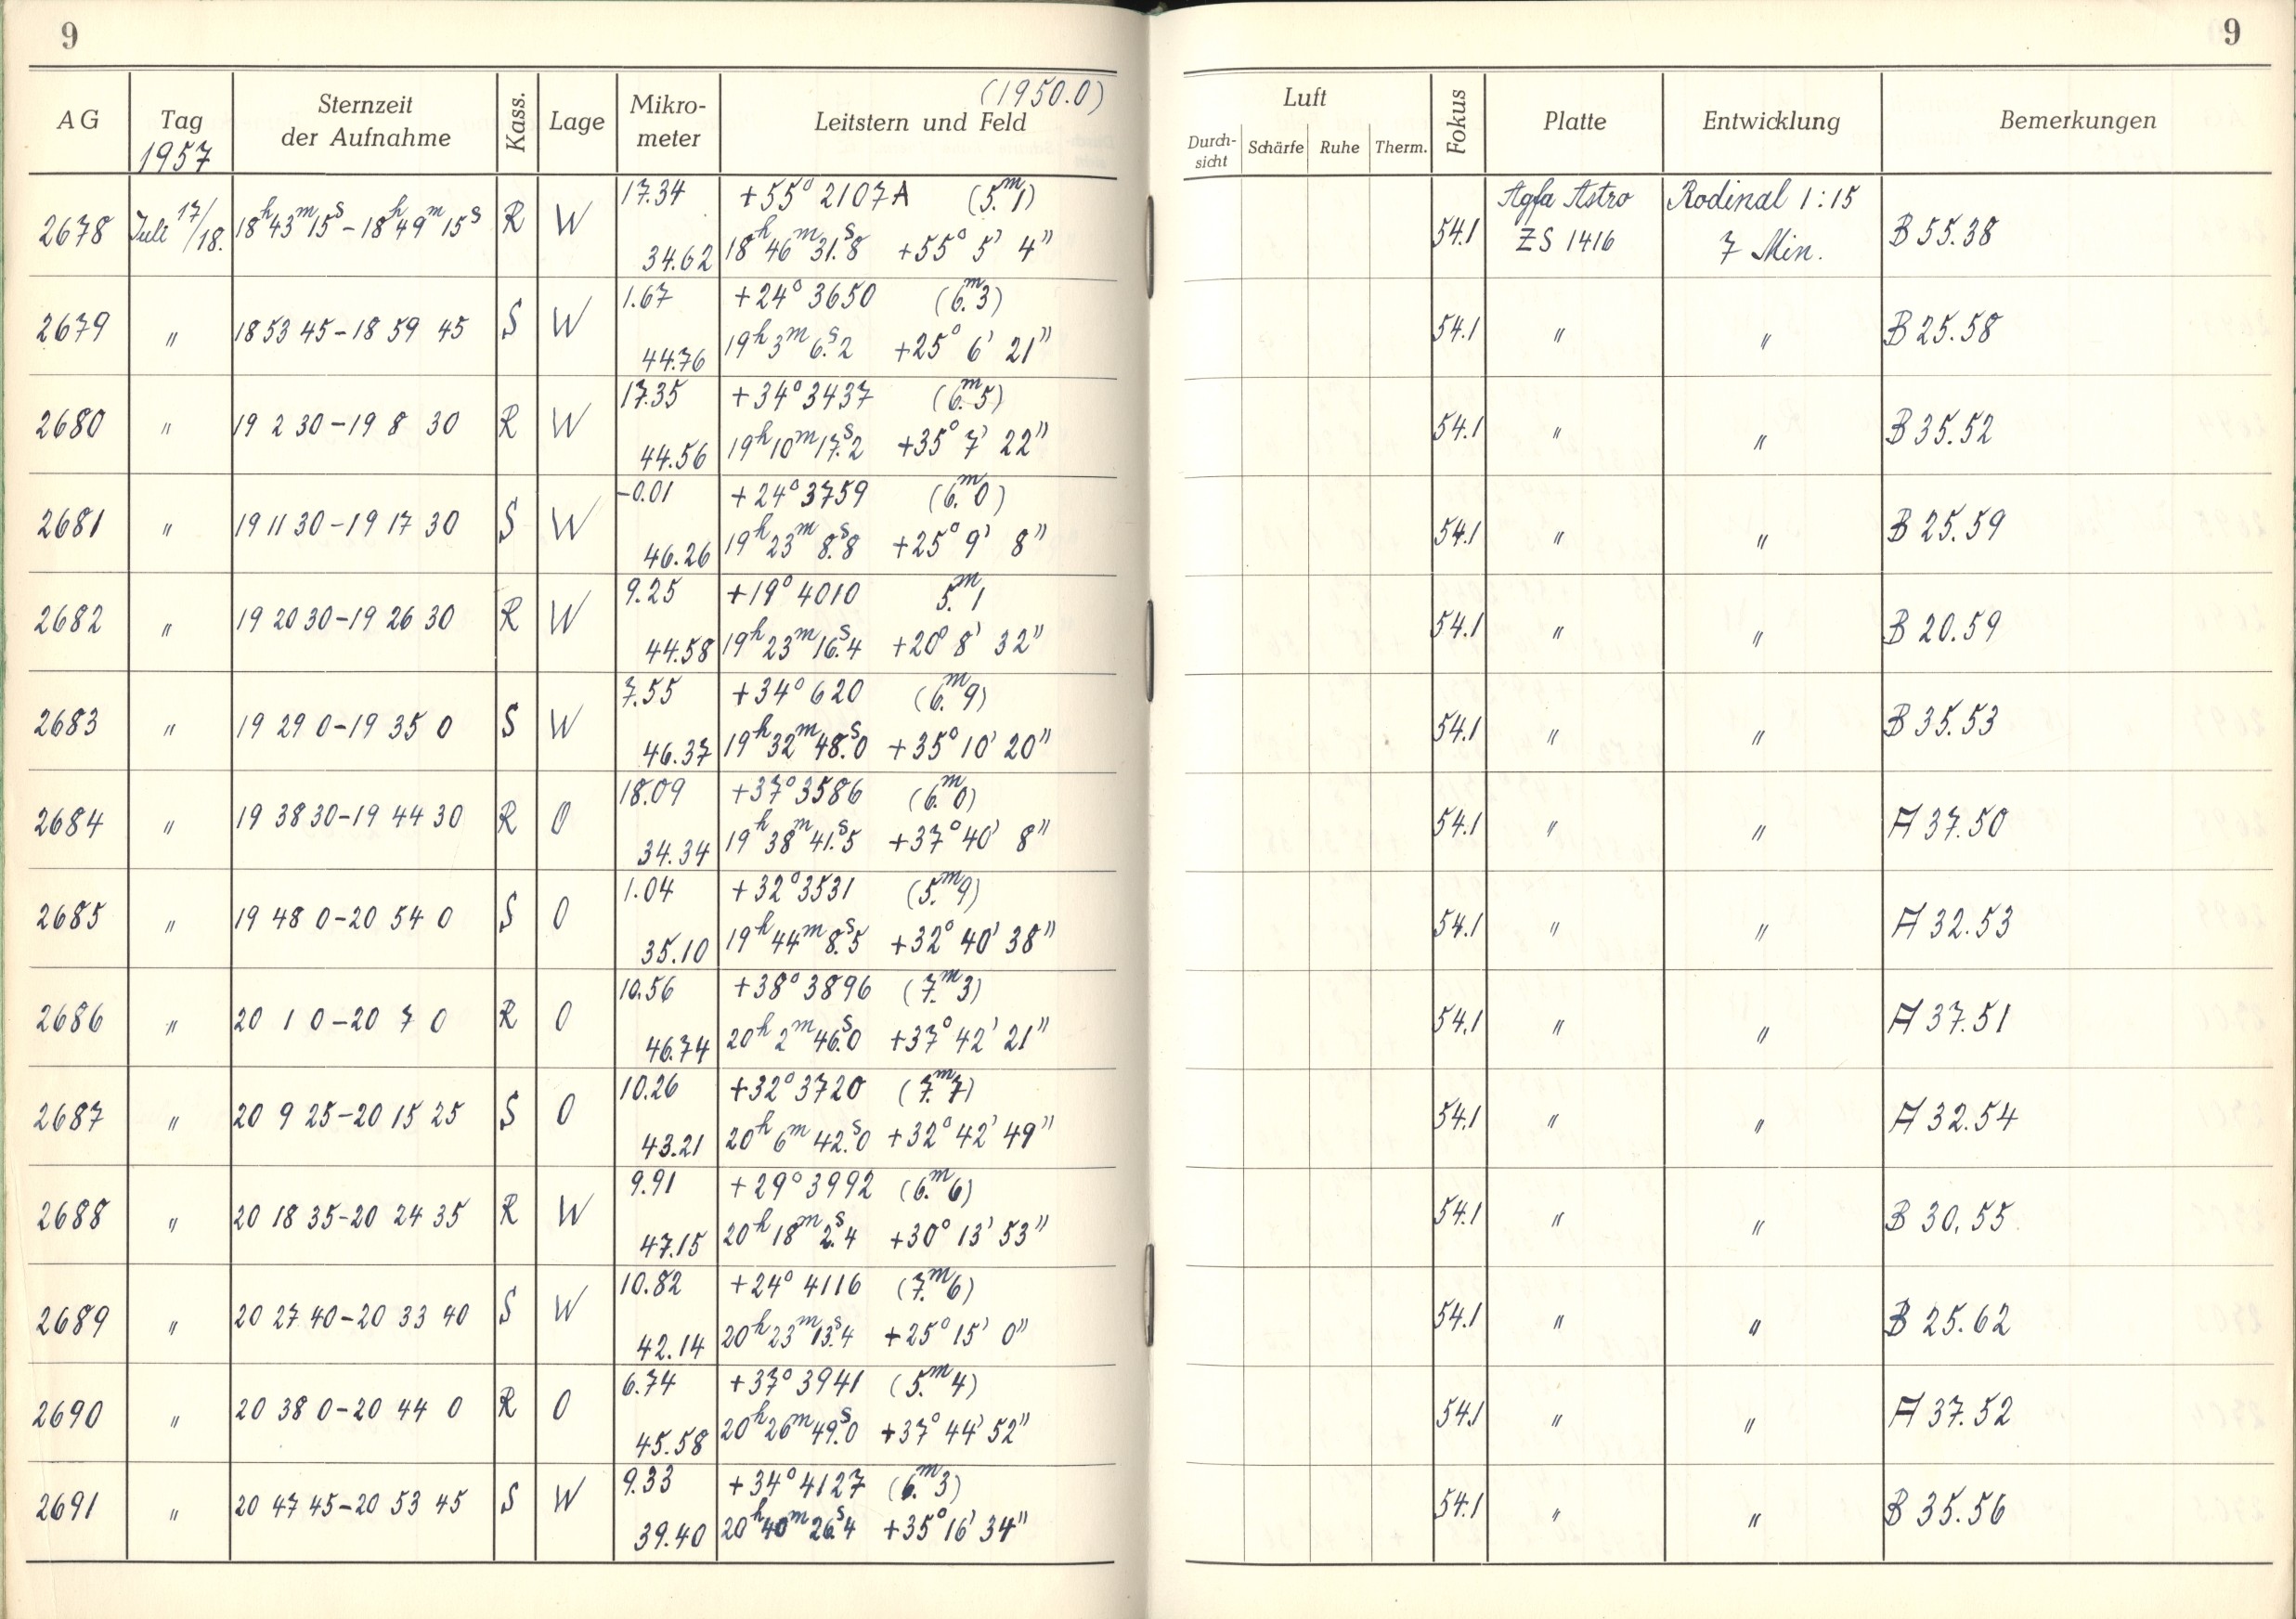 9
9
(1950.0)
AG Tag Sternzeit der Aufnahme Kass. Lage Mikro-meter Leitstern und Feld Luft Durch-sicht Schärfe Ruhe Therm. Fokus Platte Entwicklung Bemerkungen
1957
17.34 +55° 2107A (5.m1) Agfa Astro Rodinal 1:15
2678 Juli 17/18. 18h43m15s – 18h49m15s R W 54.1 ZS 1416 7 Min. B 55.38
34.62 18h46m31.s8 +55° 5' 4"
1.67 +24° 3650 (6.m3)
2679 " 18 53 45 – 18 59 45 S W 54.1 " " B 25.58
44.76 19h3m6.s2 +25° 6' 21"
17.35 +34° 3437 (6.m5)
2680 " 19 2 30 – 19 8 30 R W 54.1 " " B 35.52
44.56 19h10m17.s2 +35° 7' 22"
-0.01 +24° 3759 (6.m0)
2681 " 19 11 30 – 19 17 30 S W 54.1 " " B 25.59
46.26 19h23m8.s8 +25° 9' 8"
9.25 +19° 4010 5.m1
2682 " 19 20 30 – 19 26 30 R W 54.1 " " B 20.59
44.58 19h23m16.s4 +20° 8' 32"
7.55 +34° 620 (6.m9)
2683 " 19 29 0 – 19 35 0 S W 54.1 " " B 35.53
46.37 19h32m48.s0 +35° 10' 20"
18.09 +37° 3586 (6.m0)
2684 " 19 38 30 – 19 44 30 R O 54.1 " " A 37.50
34.34 19h38m41.s5 +37° 40' 8"
1.04 +32° 3531 (5.m9)
2685 " 19 48 0 – 20 54 0 S O 54.1 " " A 32.53
35.10 19h44m8.s5 +32° 40' 38"
10.56 +38° 3896 (7.m3)
2686 " 20 1 0 – 20 7 0 R O 54.1 " " A 37.51
46.74 20h2m46.s0 +37° 42' 21"
10.26 +32° 3720 (7.m7)
2687 " 20 9 25 – 20 15 25 S O 54.1 " " A 32.54
43.21 20h6m42.s0 +32° 42' 49"
9.91 +29° 3992 (6.m6)
2688 " 20 18 35 – 20 24 35 R W 54.1 " " B 30.55
47.15 20h18m2.s4 +30° 13' 53"
10.82 +24° 4116 (7.m6)
2689 " 20 27 40 – 20 33 40 S W 54.1 " " B 25.62
42.14 20h23m13.s4 +25° 15' 0"
6.74 +37° 3941 (5.m4)
2690 " 20 38 0 – 20 44 0 R O 54.1 " " A 37.52
45.58 20h26m49.s0 +37° 44' 52"
9.33 +34° 4127 (6.m3)
2691 " 20 47 45 – 20 53 45 S W 54.1 " " B 35.56
39.40 20h40m26.s4 +35° 16' 34"